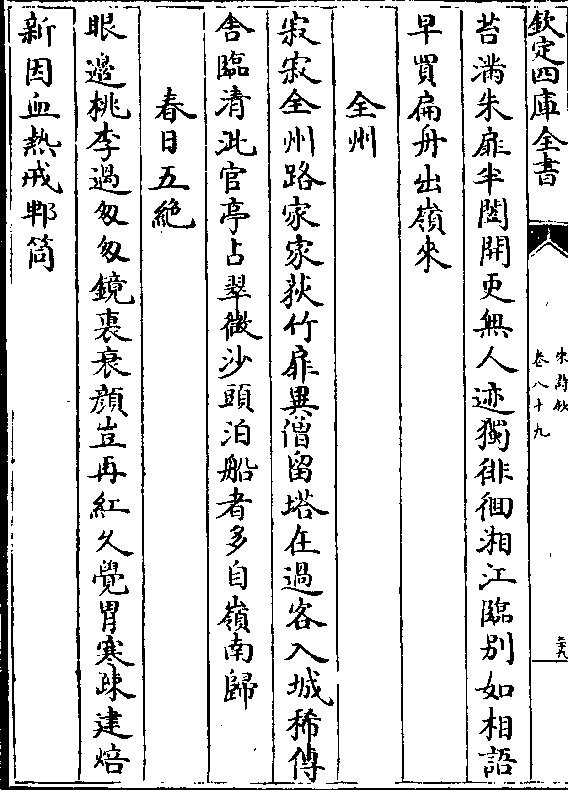 欽定四庫全書
宋詩鈔
卷八十九
苔滿朱扉半闔開更無人迹獨徘徊湘江臨別如相語
早買扁舟出嶺來
全州
寂寂全州路家家荻竹扉異僧留塔在過客入城稀傳
舍臨清泚官亭占翠微沙頭泊船者多自嶺南歸
春日五絶
眼邊桃李過匆匆鏡裏衰顔豈再紅久覺胃寒疎建焙
新因血熱戒郫筒